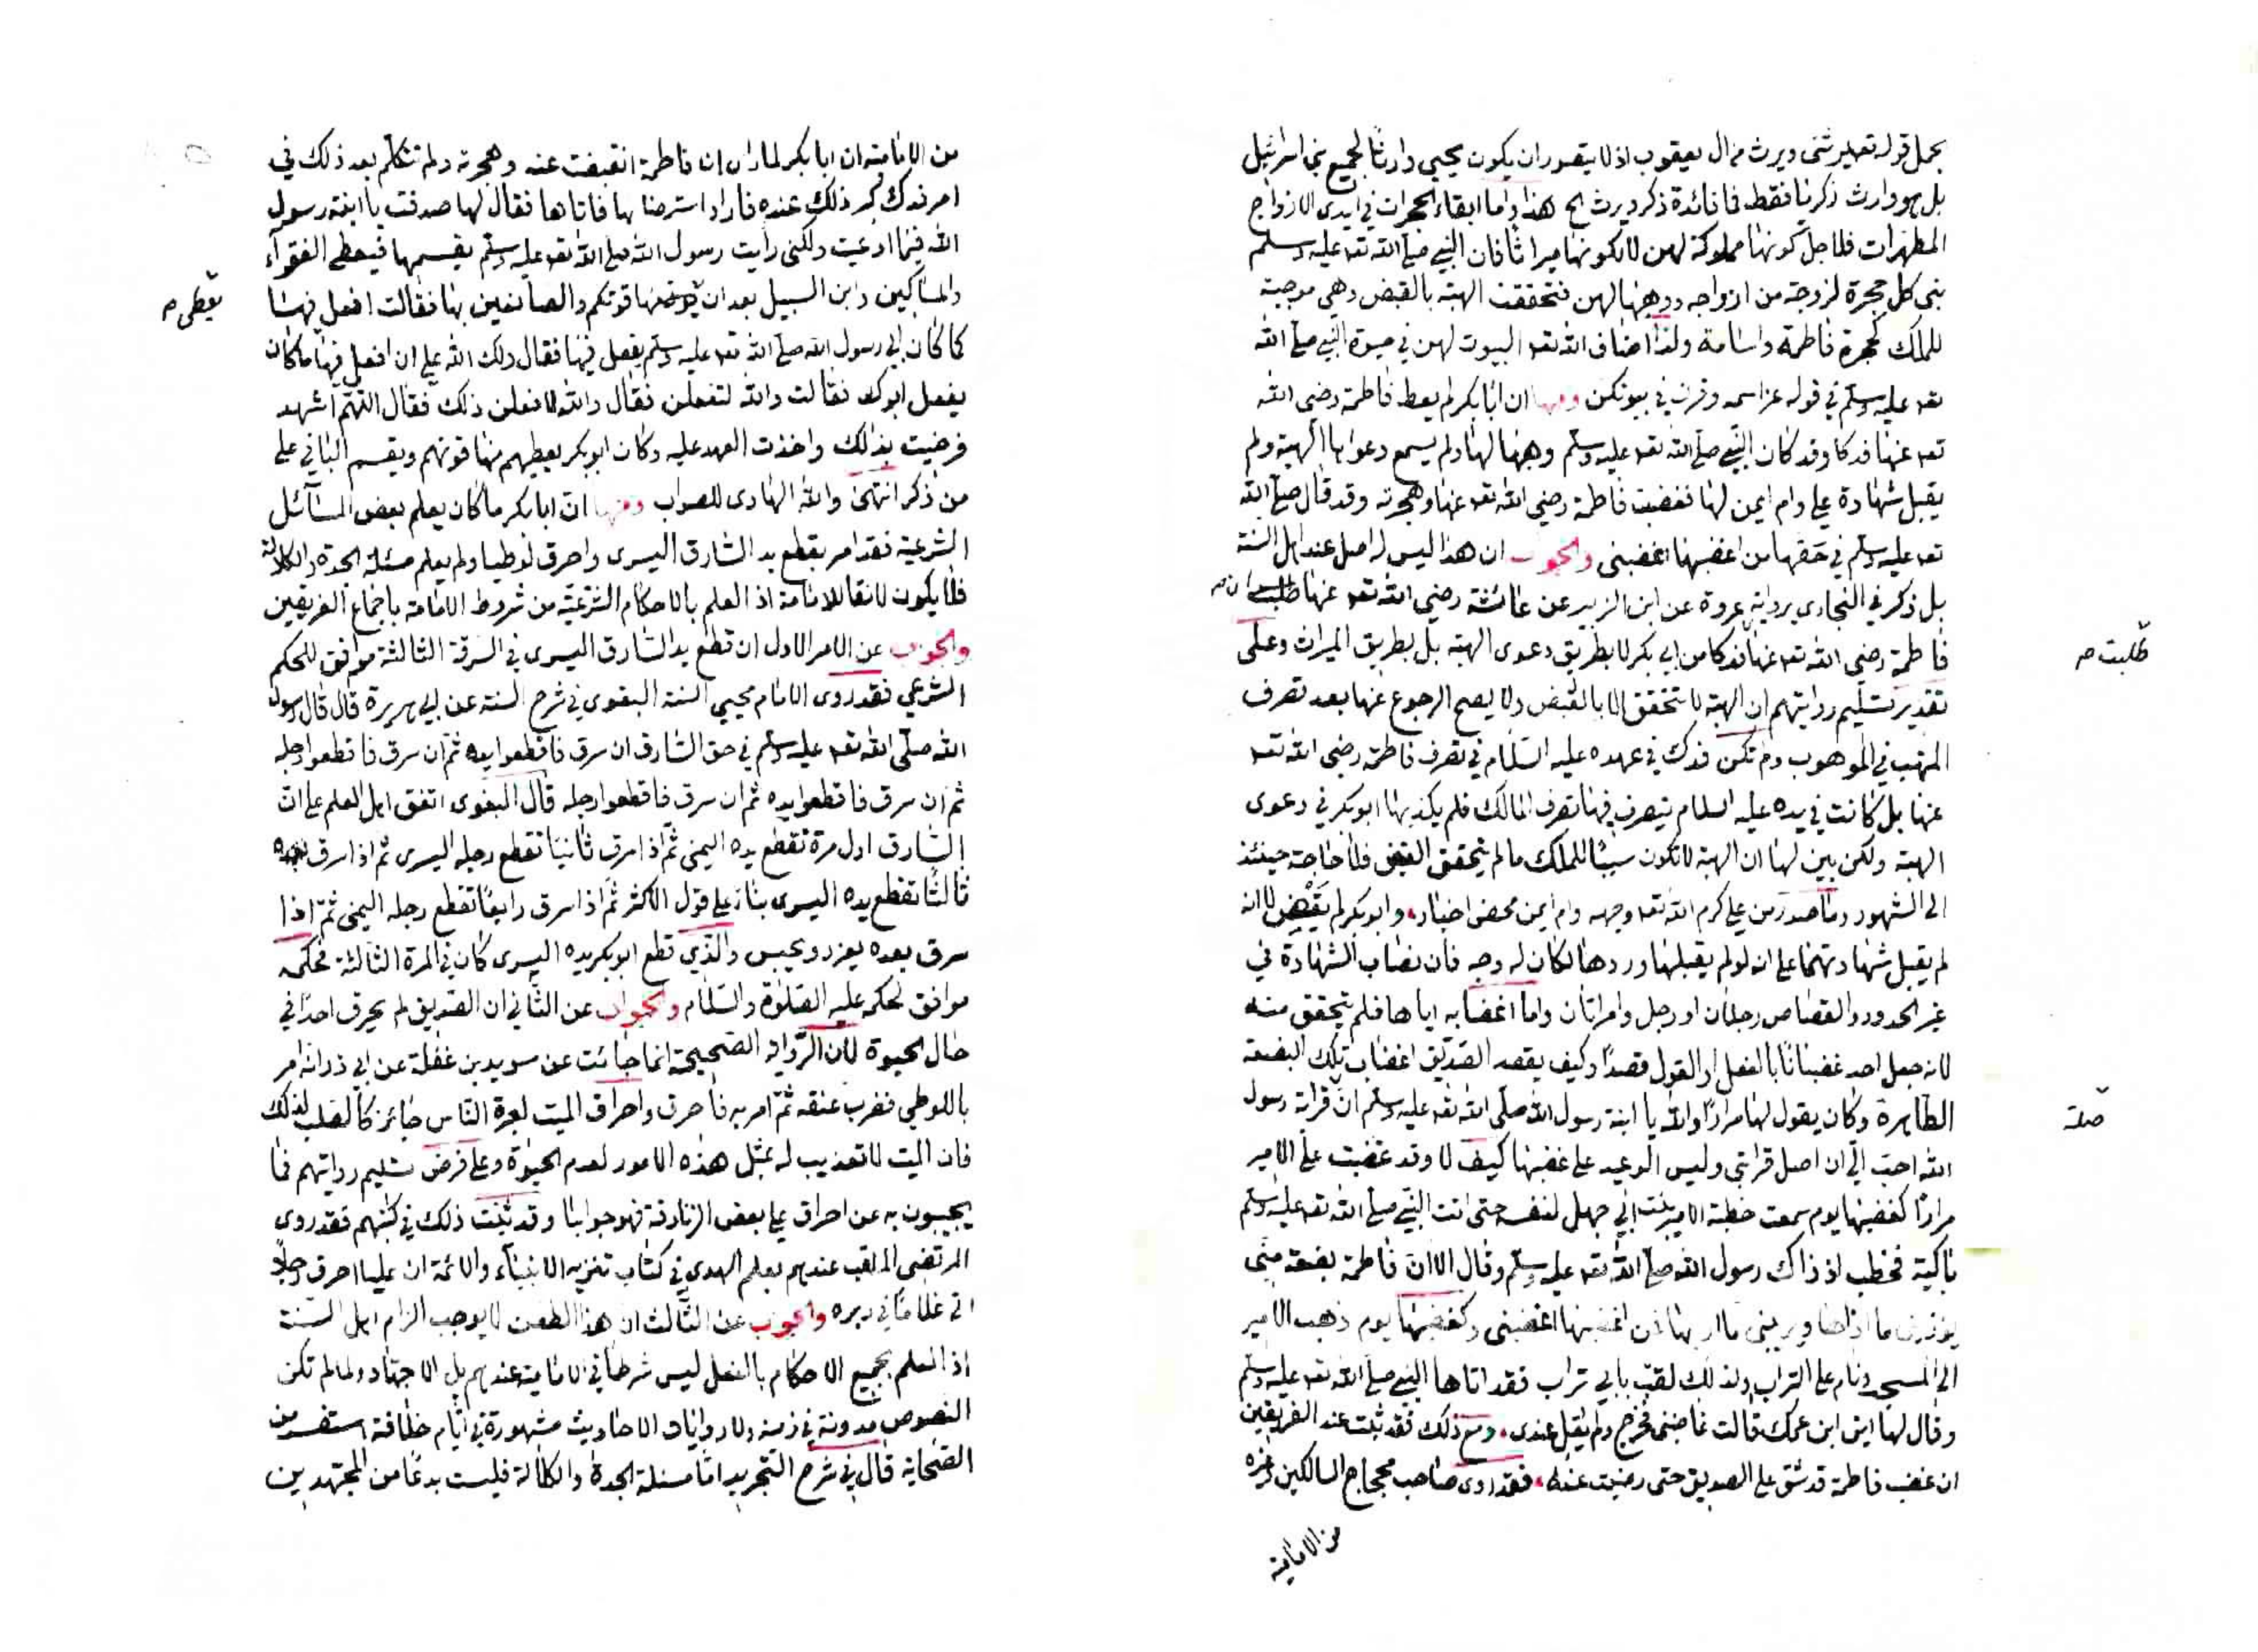 يحمل قوله تعالى يرثنى ويرث من ال يعقوب اذ لا يتصور ان يكون يحيى وارثا لجميع بنى اسرائيل
بل هو وارث زكريا فقط فما فائدة ذكر ويرث الخ هذا واما ابقاء الحجرات فى ايدى الازواج
المطهرات فلاجل كونها مملوكة لهن لا لكونها ميراثا فان النبى صلى الله تعـ عليه وسلم
بنى كل حجرة لزوجة من ازواجه ووهبها لهن فتحققت الهبة بالقبض وهى موجبة
للملك كحجرة فاطمة واسامة ولذا اضاف الله تعـ البيوت لهن فى حيوة النبى صلى الله
تعـ عليه وسلم فى قوله عز اسمه وقرن فى بيوتكن ومنها ان ابا بكر لم يعط فاطمة رضى الله
تعـ عنها فدكا وقد كان النبى صلى الله تعـ عليه وسلم وهبها لها ولم يسمع دعواها الهبة ولم
يقبل شهادة على وام ايمن لها فغضبت فاطمة رضى الله تعـ عنها وهجرته وقد قال صلى الله
تعـ عليه وسلم فى حقها من اغضبها اغضبنى والجواب ان هذا ليس له اصل عند اهل السنة
بل ذكر فى البخارى برواية عروة عن ابن الزبير عن عائشة رضى الله تعـ عنها طلبت
طلبت صح
فاطمة رضى الله تعـ عنها فدكا من ابى بكر لا بطريق دعوى الهبة بل بطريق الميراث وعلى
تقدير تسليم روايتهم ان الهبة لا تتحقق الا بالقبض ولا يصح الرجوع عنها بعد تصرف
المتهب فى الموهوب ولم تكن فدك فى عهده عليه السلام فى تصرف فاطمة رضى الله تعـ
عنها بل كانت فى يده عليه السلام يتصرف فيها تصرف المالك فلم يكذبها ابو بكر فى دعوى
الهبة ولكن بين لها ان الهبة لا تكون سببا للملك ما لم يتحقق القبض فلا حاجة حينئذ
الى الشهود وما صدر من على كرم الله تعـ وجهه وام ايمن محض اخبار وابو بكر لم يقض لا انه
لم يقبل شهادتهما على انه لو لم يقبلها وردها لكان له وجه فان نصاب الشهادة فى
غير الحدود والقصاص رجلان او رجل وامراتان واما اغضابه اياها فلم يتحقق منه
لانه جعل احد غضبانا بالفعل او القول قصدا وكيف يقصد الصديق اغضاب تلك البضعة
الطاهرة وكان يقول لها مرارا والله يا ابنة رسول الله صلى الله تعـ عليه وسلم ان قرابة رسول
صلة
الله احب الى ان اصل قرابتى وليس الوعيد على غضبها كيف لا وقد غضبت على الامير
مرارا كغضبها يوم سمعت خطبة الامير بنت ابى جهل لنفسه حتى اتت النبى صلى الله تعـ عليه وسلم
باكية فخطب اذ ذاك رسول الله صلى الله تعـ عليه وسلم وقال الا ان فاطمة بضعة منى
يؤذينى ما اذاها ويريبنى ما ارابها فمن اغضبها اغضبنى وكغضبها يوم ذهب الامير
الى المسجد ونام على التراب ولذلك لقب بابى تراب فقد اتاها النبى صلى الله تعـ عليه وسلم
وقال لها اين ابن عمك قالت غاضبنى فخرج ولم يقل عندى ومع ذلك فقد ثبت عند الفريقين
ان غضب فاطمة قد شق على الصديق حتى رضيت عنه فقد روى صاحب محجاج السالكين وغيره
من الامامية
من الامامية ان ابا بكر لما راى ان فاطمة انقبضت عنه وهجرته ولم تتكلم بعد ذلك فى
امر فدك كبر ذلك عنده فاراد استرضاءها فاتاها فقال لها صدقت يا ابنة رسول
الله فيما ادعيت ولكنى رأيت رسول الله صلى الله تعـ عليه وسلم يقسمها فيعطى الفقراء
والمساكين وابن السبيل بعد ان يؤتى منها قوتكم والصانعين بها فقالت افعل فيها
يعطى صح
كما كان ابى رسول الله صلى الله تعـ عليه وسلم يفعل فيها فقال ولك الله على ان افعل فيها ما كان
يفعل ابوك فقالت والله لتفعلن فقال والله لافعلن ذلك فقال اللهم اشهد
فرضيت بذلك واخذت العهد عليه وكان ابو بكر يعطيهم منها قوتهم ويقسم الباقى على
من ذكر انتهى والله الهادى للصواب ومنها ان ابا بكر ما كان يعلم بعض المسائل
الشرعية فقد امر بقطع يد السارق اليسرى واحرق لوطيا ولم يعلم مسئلة الجدة والكلالة
فلا يكون لائقا للامامة اذ العلم بالاحكام الشرعية من شروط الامامة باجماع الفريقين
والجواب عن الامر الاول ان قطع يد السارق اليسرى فى السرقة الثالثة موافق للحكم
الشرعى فقد روى الامام محيى السنة البغوى فى شرح السنة عن ابى هريرة قال قال رسول
الله صلى الله تعـ عليه وسلم فى حق السارق ان سرق فاقطعوا يده ثم ان سرق فاقطعوا رجله
ثم ان سرق فاقطعوا يده ثم ان سرق فاقطعوا رجله قال البغوى اتفق اهل العلم على ان
السارق اول مرة تقطع يده اليمنى ثم اذا سرق ثانيا تقطع رجله اليسرى ثم اذا سرق
ثالثا تقطع يده اليسرى بناء على قول الاكثر ثم اذا سرق رابعا تقطع رجله اليمنى ثم اذا
سرق بعده يعزر ويحبس والذى قطع ابو بكر يده اليسرى كان فى المرة الثالثة فحكمه
موافق لحكمه عليه الصلوة والسلام والجواب عن الثانى ان الصديق لم يحرق احدا فى
حال الحيوة لان الرواية الصحيحة انما جائت عن سويد بن غفلة عن ابى ذر انه امر
باللوطى فضرب عنقه ثم امر به فاحرق واحراق الميت لعبرة الناس جائز كالصلب لذلك
فان الميت لا تعذيب له بمثل هذه الامور لعدم الحيوة وعلى فرض تسليم روايتهم فما
يجيبون به عن احراق على بعض الزنادقة فهو جوابنا وقد ثبت ذلك فى كتبهم فقد روى
المرتضى الملقب عندهم بعلم الهدى فى كتاب تنزيه الانبياء والائمة ان عليا احرق رجلا
اتى غلاما فى دبره والجواب عن الثالث ان هذا الطعن لا يوجب الزام اهل السنة
اذ العلم بجميع الاحكام بالفعل ليس شرطا فى الامامية عندهم بل الاجتهاد ولما لم تكن
النصوص مدونة فى زمنه ولا روايات الاحاديث مشهورة فى ايام خلافته استفسر من
الصحابة قال فى شرح التجريد اما مسئلة الجدة والكلالة فليست بدعا من المجتهدين